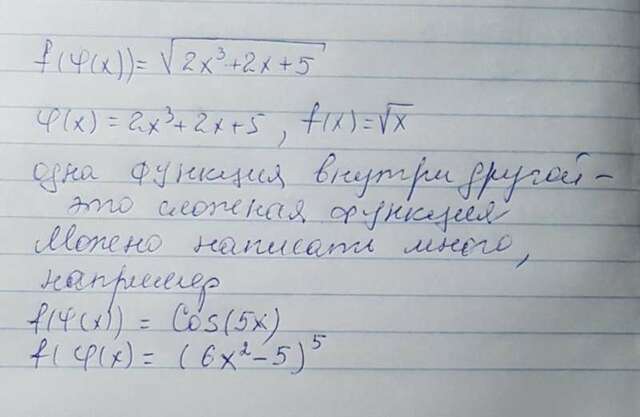 f(φ(x)) = √2x³+2x+5
φ(x) = 2x³+2x+5, f(x)=√x
одна функция внутри другой –
это сложная функция
Можено написать много,
например
f(φ(x)) = Cos(5x)
f(φ(x) = (6x²-5)⁵